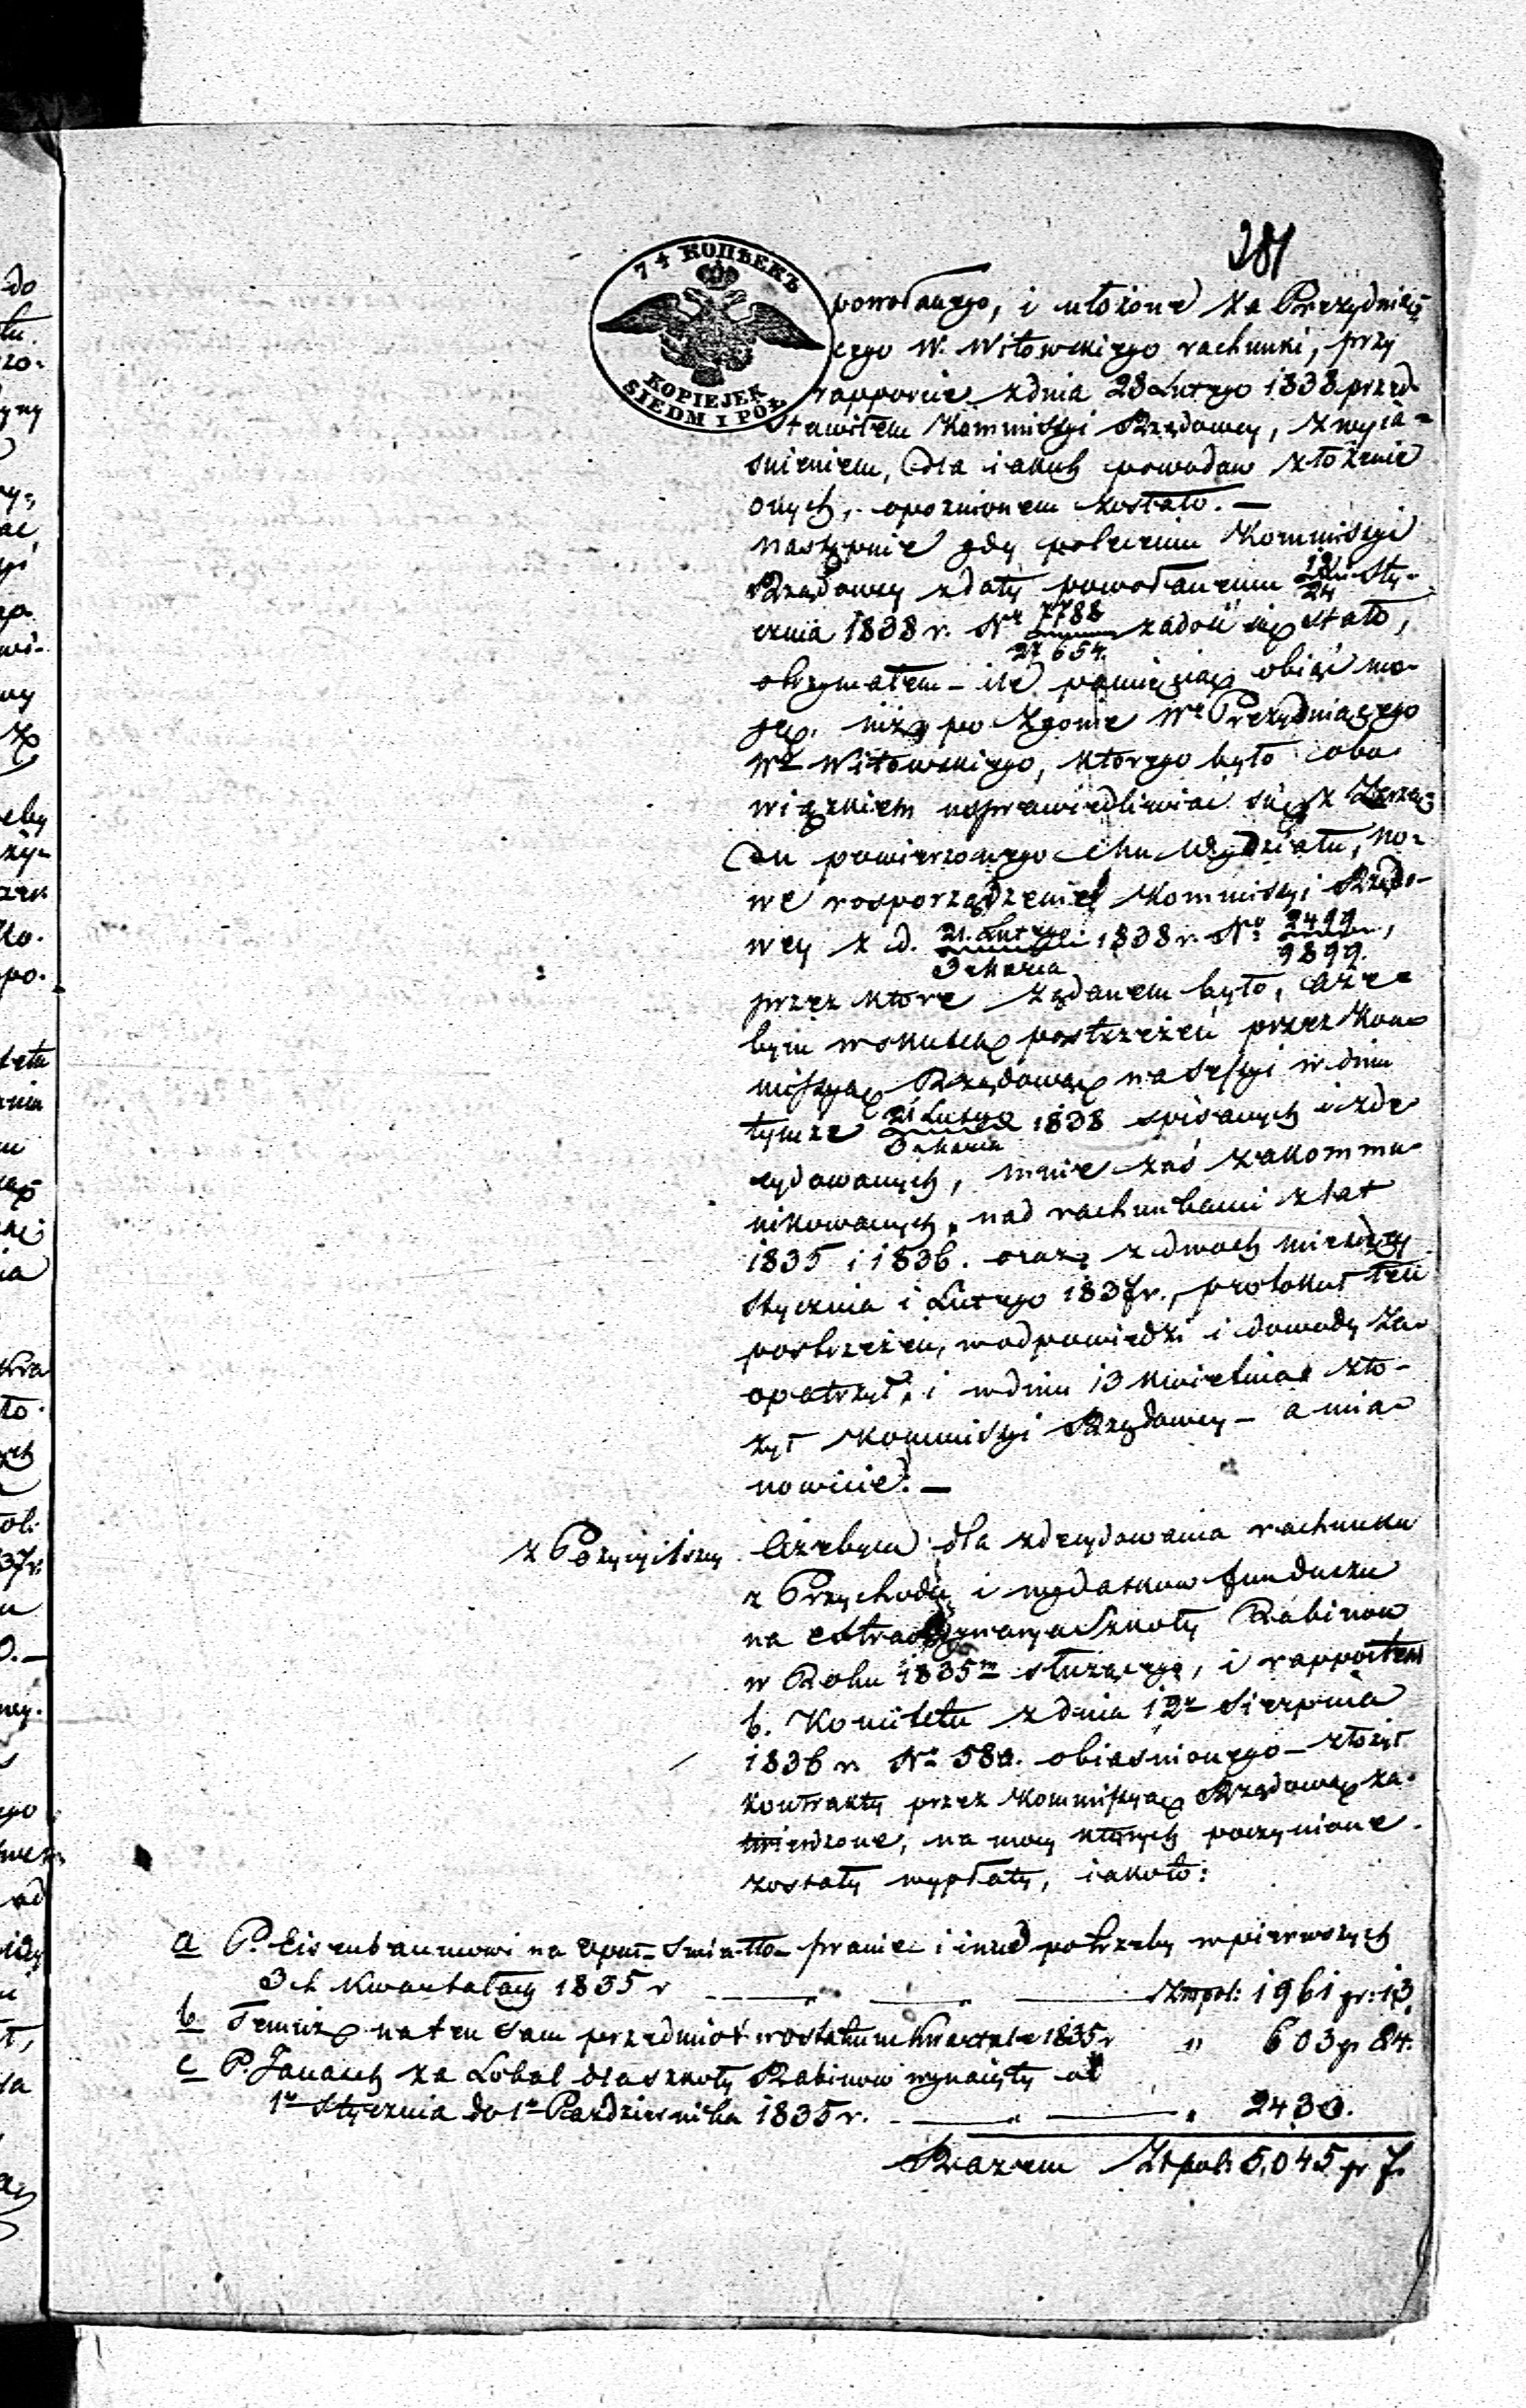 281
7½ КОПѢЕКЪ
KOPIEJEK
SIEDM I PÓŁ
powołanego, i ułożone za Prezydniią
cego W. Witowskiego rachunki, przy
rapporcie z dnia 28 Lutego 1838 przed
stawiłem Kommissyi Rządowey, z wyia=
śnieniem, dla iakich powodów złożenie
onych, opoznionem zostało. —
Następnie gdy poleceniu Kommissyi
Rządowey z daty powołanemu 12/24 Sty-
cznia 1838 r. Nr 7788/27654 zadość się stało,
otrzymałem — ile pamięcią obiąć mo-
gę, iuż po zgonie Wo Prezydniącego
Wo Witowskiego, którego było obo-
wiązkiem usprawiedliwiać się z Zarzą=
du powierzonego mu Wydziału, no-
we rosporządzenie Kommissyi Rządo-
wey z d. 21. Lutego/3 Marca 1838 r. No 2499/9899,
przez które żądanem było, aże=
bym wskutek postrzeżeń przez Kom=
missyą Rządową na Sessyi w dniu
tymże 21 Lutego/3 Marca 1838 spisanych i zde
cydowanych, mnie zaś zakommu-
nikowanych, nad rachunkami z lat
1835 i 1836. oraz z dwóch miesięcy
Stycznia i Lutego 1837 r., protokuł tych
postrzeżeń, w odpowiedzi i dowody za-
opatrzył, i w dniu 13 Kwietnia zło-
żył Kommissyi Rządowey — a mia-
nowicie: —
z Pozycyi 1szey Ażebym dla zdecydowania rachunku
z Przychodu i wydatków funduszu
na Szkoły Rabinów
w Roku 1835m służącego, i rapportem
b. Komitetu z dnia 12o Sierpnia
1836 r. No 580. obiaśnionego — złożył
kontrakty przez Kommissyą Rządową za-
twierdzone, na mocy których poczynione
zostały wypłaty, iakoto:
a P. Eisenbaumowi na Opał — Swiatło — pranie i inne potrzeby w pierwszych
3ch Kwartałach 1835 r — — — Złtpol: 1961 gr: 13.
b Temuż na ten sam przedmiot w ostatnim Kwartale 1835 r " 603 gr 24.
c P. Janasch za Lokal dla szkoły Rabinów wynaięty od
1o Stycznia do 1o Października 1835 r. — — " 2430.
Razem Złpol: 5,045 gr 7.